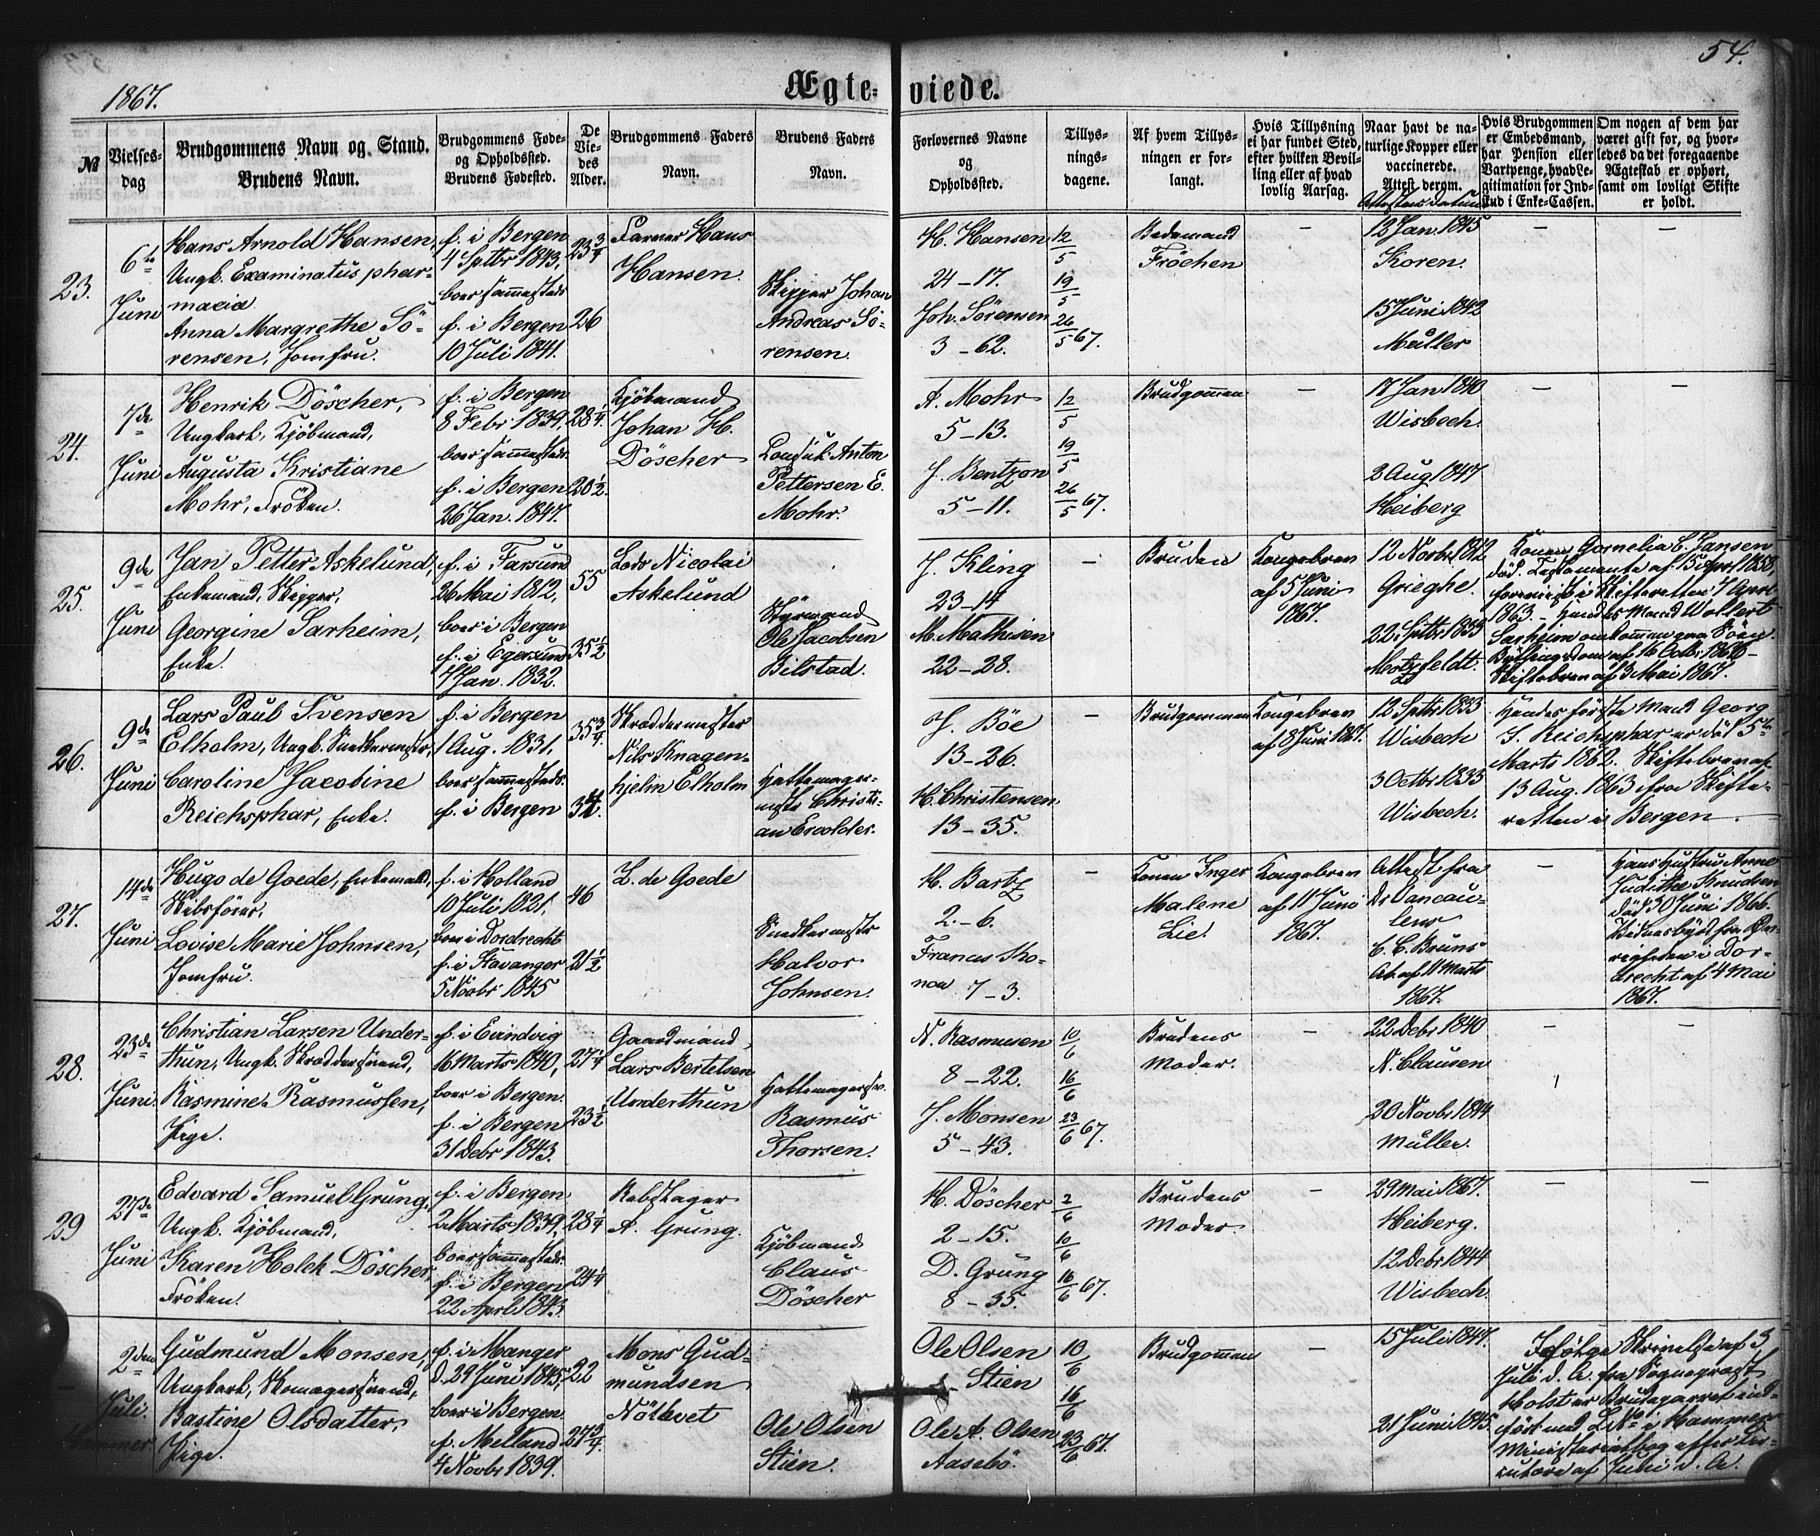 1867.
54.
Ægte-
viede.
№
Vielses-
dag
Brudgommens Navn og Stand.
Brudens Navn.
Brudgommens Føde-
og Opholdssted.
Brudens Fødested.
De
Vie-
des
Alder.
Brudgommens Faders
Navn.
Brudens Faders
Navn.
Forlovernes Navne
og
Opholdssted.
Tillys-
nings-
dagene.
Af hvem Tillys-
ningen er for-
langt.
Hvis Tillysning
ei har fundet Sted,
efter hvilken Bevil-
ling eller af hvad
lovlig Aarsag.
Naar havt de na-
turlige Kopper eller
vaccinerede.
Attest derom.
Hvis Brudgommen
er Embedsmand,
har Pension eller
Vartpenge, hvad Le-
gitimation for Ind-
skud i Enke-Cassen.
Om nogen af dem har
været gift før, og hvor-
ledes da det foregaaende
Ægteskab er ophørt,
samt om lovligt Skifte
er holdt.
23.
6te
Juni
Hans Arnold Hansen,
Ungk. Examinatus phar-
macia
Anna Margrethe Sö-
rensen, Jomfru.
f. i Bergen
4 Septbr 1843,
boer sammesteds
f. i Bergen
10 Juli 1841.
23 3/4
26
Farver Hans
Hansen.
Skipper Johan
Andreas Sö-
rensen.
H. Hansen
24-17.
Joh. Sörensen
3-62.
12/5
19/5
26/5 67.
Bedemand
Fröchen
-
12 Jan. 1845
Koren.
15 Juni 1842
Müller
-
-
24.
7de
Juni
Henrik Döscher,
Ungkarl, Kjöbmand,
Augusta Kristiane
Mohr, Fröken.
f. i Bergen
8 Febr 1839,
boer sammesteds.
f. i Bergen
26 Jan. 1847.
28 1/4.
20 1/2.
Kjöbmand
Johan H.
Döscher
Konsul Anton
Pettersen E.
Mohr.
A. Mohr
5-13.
J. Bentzon
5-11.
12/5
19/5
26/5 67.
Brudgommen
-
17 Jan 1840
Wisbech.
2 Aug 1847
Heiberg
-
-
25.
9de
Juni
Jan Petter Askelund,
Enkemand, Skipper,
Georgine Sarheim,
Enke.
f. i Farsund
26 Mai 1812,
boer i Bergen
f. i Egersund
1 Jan. 1832.
55
35 1/2
Lods Nicolai
Askelund
Styrmand
Ole Jacobsen
Bilstad.
J. Kling
23-14
M. Mathisen
22-28.
-
Bruden
Kongebrev
af 5 Juni
1867.
12 Novbr 1812
Grieghe.
22 Septbr 1833
Mortzfeldt.
Konen Gornelia C. Jansen
död. Testamente af 15 April 1858,
foreviist i Skifteretten 7 April
1863. - Hendes Mand Wollert
Sarheim omkommen paa Söen
Bjöfinge Dom af 16 Octbr 1866 -
Skiftebrev af 3 Mai 1867.
26.
9de
Juni
Lars Paul Svensen
Elholm, Ungk. Snedkermstr,
Caroline Jacobine
Reichsphar, Enke.
f. i Bergen
1 Aug. 1831.
boer sammesteds.
f. i Bergen
35 3/4.
34.
Skræddermester
Nils Knagen-
hjelm Elholm
Hattemager-
mstr Christi-
an Ervolder.
J. Böe
13-26.
H. Christensen
13-35.
-
Brudgommen
Kongebrev
af 8 Juni 1867.
12 Septbr 1833
Wisbech
3 Octbr 1833
Wisbech.
Hendes förste Mand Georg
S. Reichsphar er död 5te
Marts 1862. Skiftebrev af
13 Aug. 1863 fra Skifte-
retten i Bergen.
27.
14de
Juni
Hugo de Goede, Enkemand,
Skibsförer,
Lovise Marie Johnsen,
Jomfru.
f. i Holland
10 Juli 1821,
boer i Dordrecht
f. i Stavanger
5 Novbr 1845
46
21 1/2
L. de Goede
Snedkermstr
Halvor
Johnsen.
H. Bartz
2.-6.
Frances Tho-
nou 7-3.
-
Konen Inger
Malene
Lie.
Kongebrev
af 11 Juni
1867.
Attest fra
Dr Vancau-
lew
C. C. Bruns
At af 11 Marts
1867.
-
Hans Hustru Anne
Judithe Knudsen
död 30 Juni 1866.
Vidnesbyrd fra Öv-
righeden i Dor-
drecht af 4 Mai
1867.
28.
23de
Juni.
Christian Larsen Under-
thun, Ungk. Skræddersvend,
Rasmine Rasmussen,
Pige.
f. i Evindvig
16 Marts 1840,
boer i Bergen.
f. i Bergen
31 Debr 1843.
27 1/4
23 1/2
Gaardmand
Lars Bertelsen
Underthun
Hattemagersv.
Rasmus
Thorsen.
N. Rasmusen
8-22.
J. Monsen
5-43.
10/6
16/6
23/6 67.
Brudens
Moder.
-
22 Debr 1840
N. Clausen
20 Novbr 1844
Müller.
-
-
29
27de
Juni
Edvard Samuel Grung,
Ungk. Kjöbmand,
Karen Holck Döscher,
Fröken.
f. i Bergen
2 Marts 1839,
boer sammesteds.
f. i Bergen
22 April 1843.
28 1/4
24 1/4
Rebslager
A. Grung.
Kjöbmand
Claus
Döscher
H. Döscher
2-15.
D. Grung
8-35.
2/6
10/6
16/6 67.
Brudens
Moder.
-
29 Mai 1867.
Heiberg.
12 Debr 1844
Wisbech.
-
-
2den
Juli.
Hammer.
Gudmund Monsen,
Ungkarl, Skomagersvend,
Bastine Olsdatter,
Pige.
f. i Manger
d. 29 Juni 1845,
boer i Bergen.
f. Melland
4 Novbr 1839.
22
27 3/4.
Mons Gud-
mundsen
Nötlevet
Ole Olsen
Stien.
Ole Olsen
Stien
Ole A. Olsen
Aasebö.
10/6
16/6
23/6 67.
Brudgommen
-
15 Juli 1847.
21 Juni 1845.
Ifölge Skrivelse af 3
Juli d. A. fra Sognepræst
Holst er Brudeparret ind-
fört med L. No i Hammer
Ministerialbog efter Lis-
ence af Juli d. A.